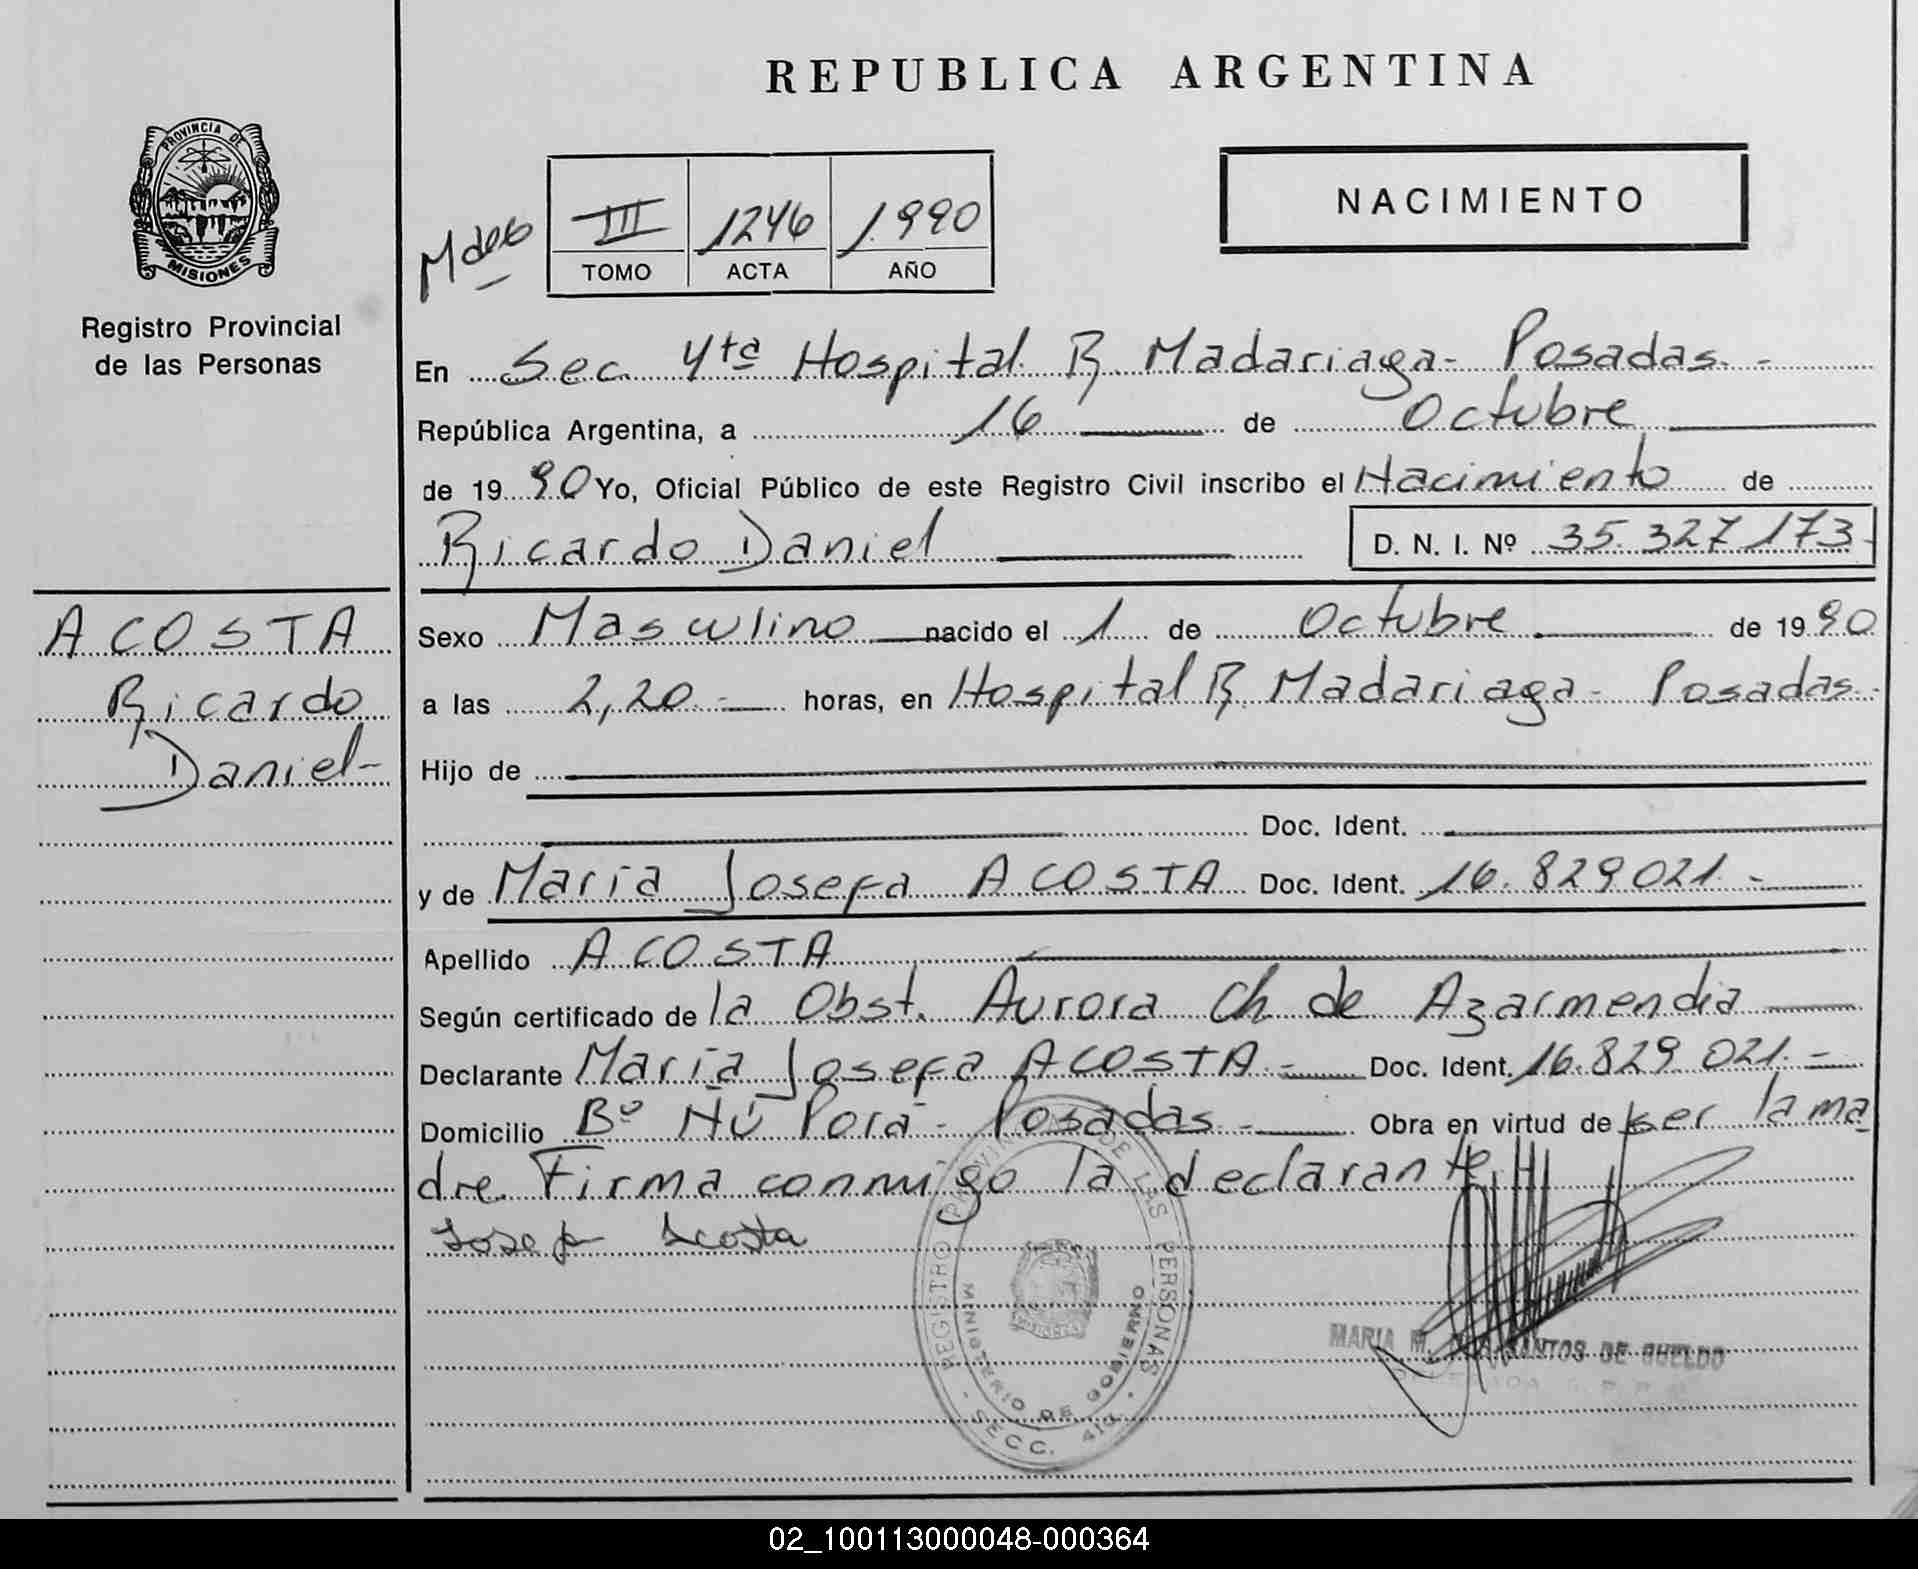 REPUBLICA ARGENTINA
PROVINCIA DE
MISIONES
Registro Provincial
de las Personas
III 1246 1990
TOMO ACTA AÑO
NACIMIENTO
En Sec 4ta Hospital R. Madariaga- Posadas.-
República Argentina, a 16 de Octubre
de 1990 Yo, Oficial Público de este Registro Civil inscribo el Nacimiento de
Ricardo Daniel D. N. I. Nº 35.327.173-
ACOSTA
Ricardo
Daniel-
Sexo Masculino nacido el 1 de Octubre de 1990
a las 2,20.- horas, en Hospital R. Madariaga- Posadas.-
Hijo de
Doc. Ident.
y de María Josefa ACOSTA Doc. Ident. 16.829021.-
Apellido ACOSTA
Según certificado de la Obst. Aurora Ch de Azarmendia
Declarante María Josefa ACOSTA.- Doc. Ident. 16.829.021.-
Domicilio Bº Ñú Porá- Posadas.- Obra en virtud de ser la ma
dre. Firma conmigo la declarante
Josefa Acosta
REGISTRO DE LAS PERSONAS
MINISTERIO DE GOBIERNO
SECC. 4ta.
MARIA M. SANTOS DE
02_100113000048-000364